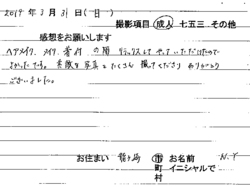 2019年3月31日(日)
撮影項目 成人 七五三 その他
感想をお願いします
ヘアメイク、メイク、着付の間リラックスしてやっていただけたので
よかったです。素敵な写真をたくさん撮ってくださりありがとう
ございました。
お住まい 鶴ヶ島 市 お名前 N.Y
町 イニシャルで
村